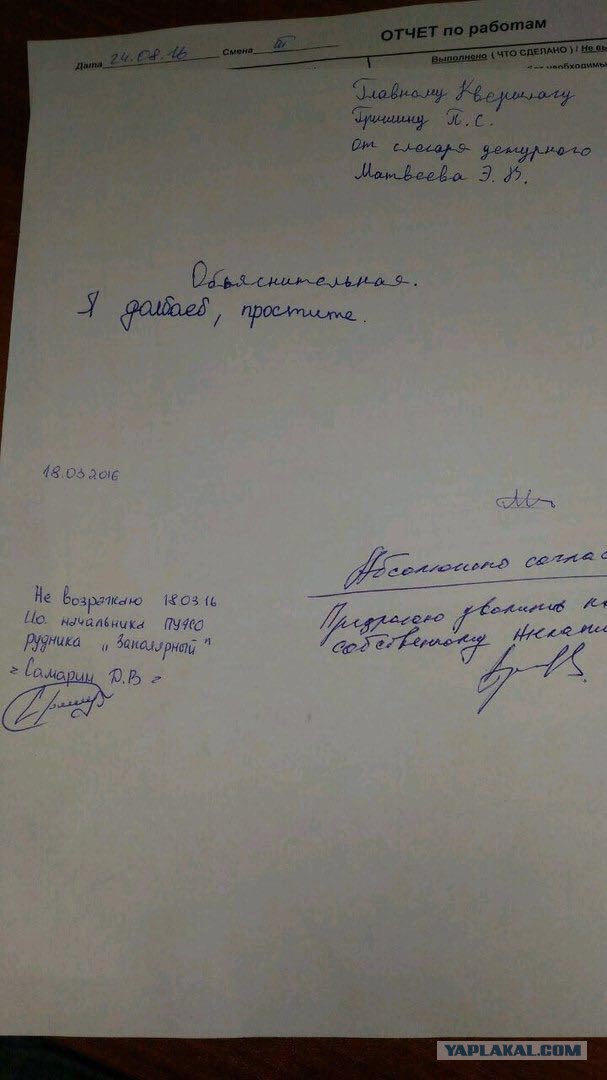 ОТЧЕТ по работам
Дата 24.08.16 Смена III
Выполнено ( ЧТО СДЕЛАНО ) / Не вы
Главному
П. С.
от слесаря дежурного
Матвеева Э. В.
Объяснительная.
Я долбаеб, простите.
18.03.2016
Абсолютно соглас
Не возражаю 18.03.16
Ио. начальника
рудника „Заполярный"
Самарин Д.В
Предлагаю уволить по
собственному желани
YAPLAKAL.COM